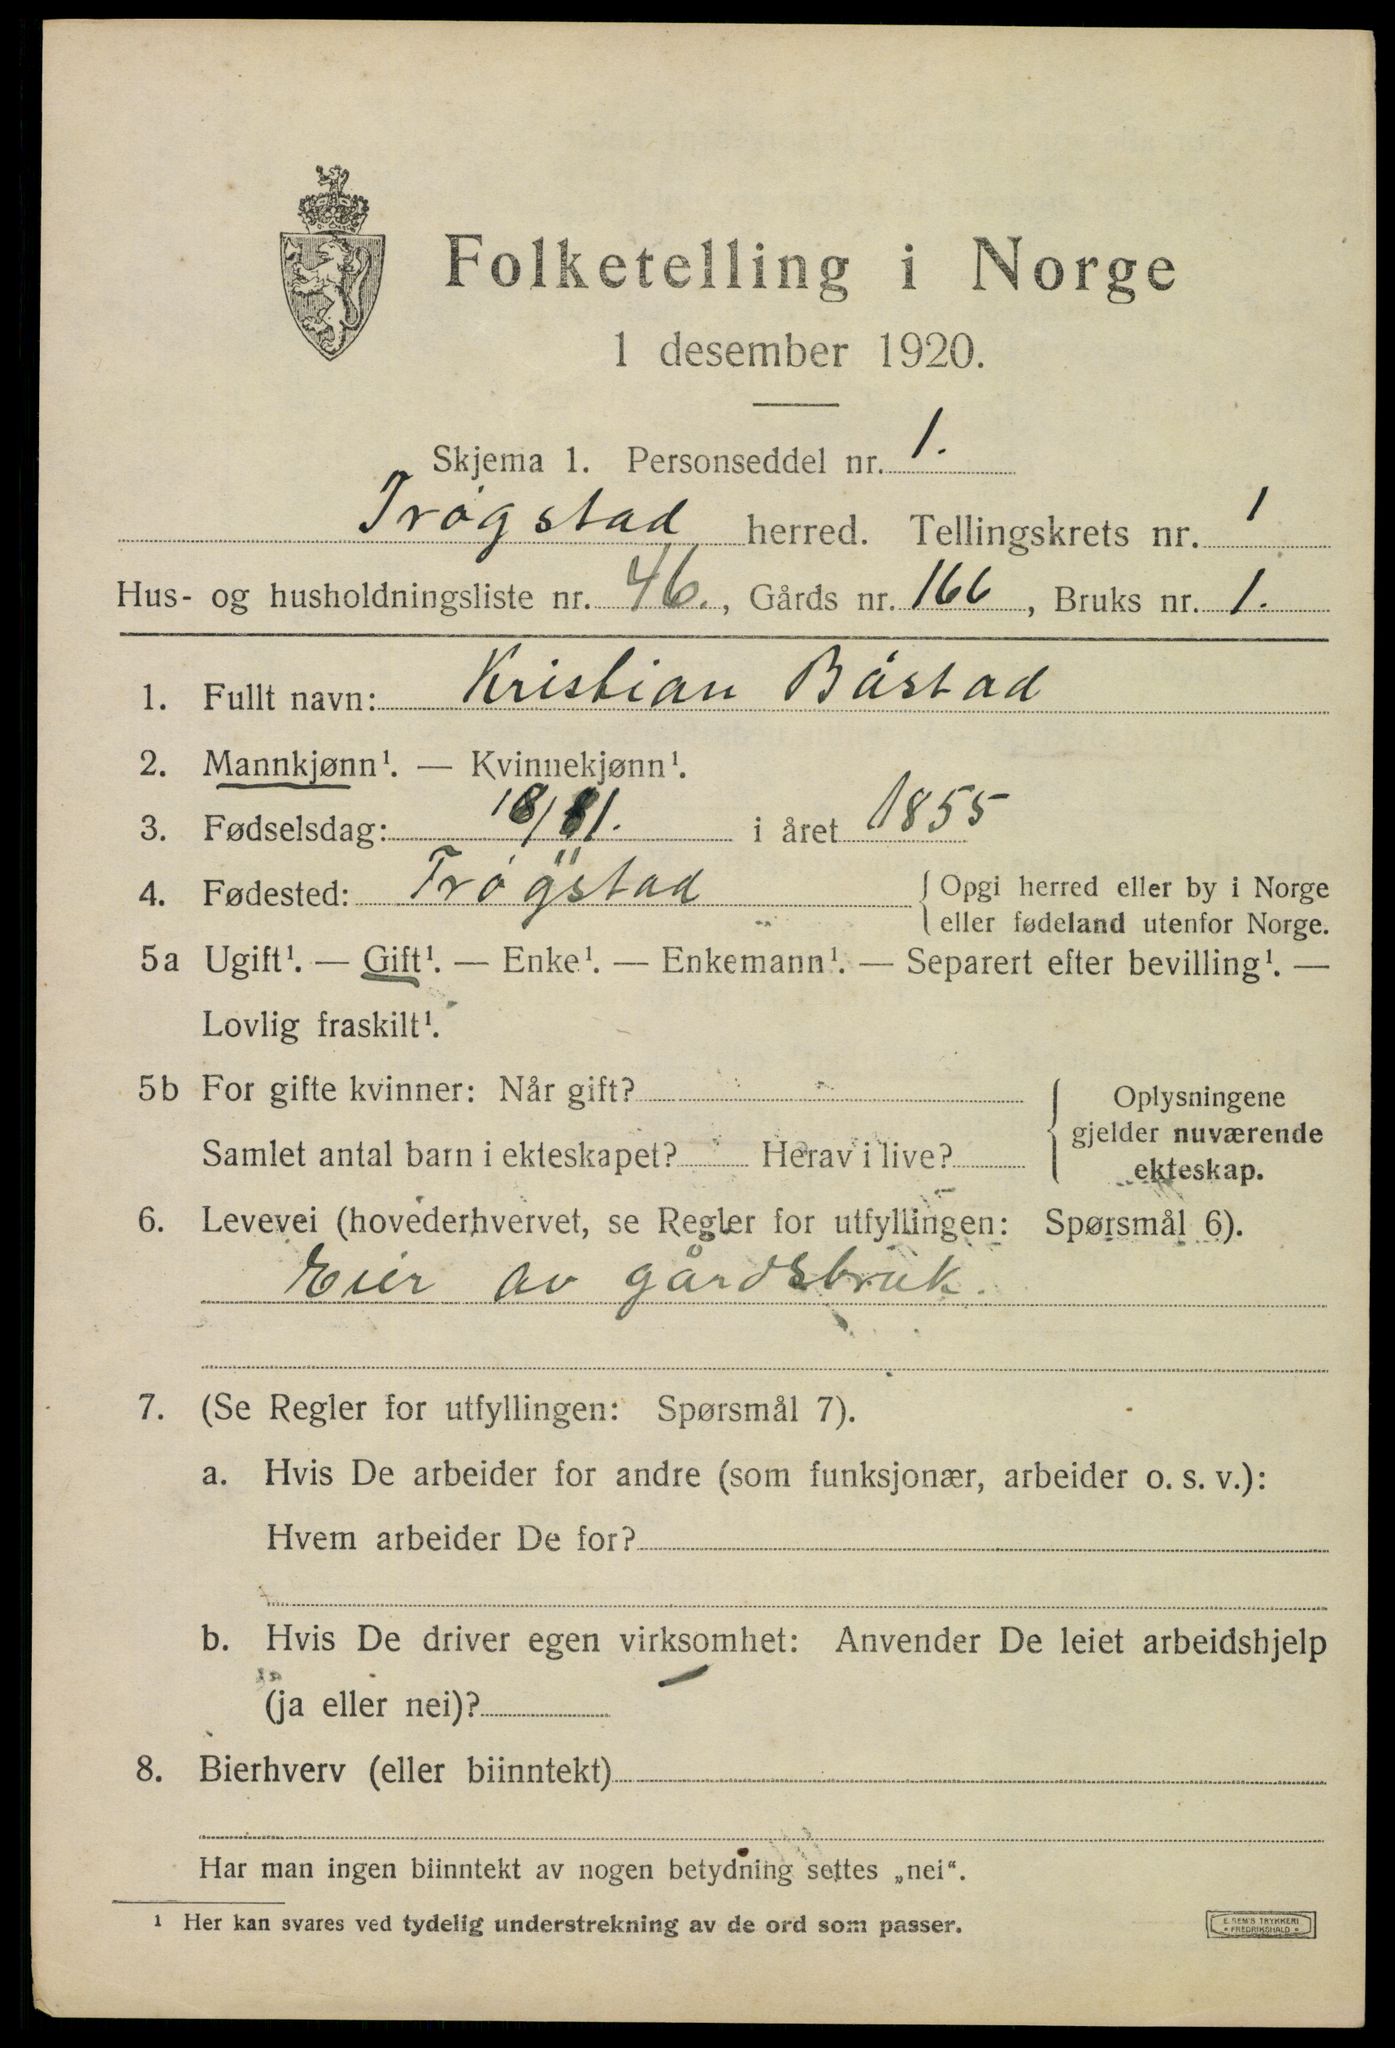 Folketelling i Norge
1 desember 1920.
Skjema 1. Personseddel nr. 1.
Trøgstad herred. Tellingskrets nr. 1
Hus- og husholdningsliste nr. 46., Gårds nr. 166, Bruks nr. 1.
1. Fullt navn: Kristian Båstad
2. Mannkjønn¹. — Kvinnekjønn¹.
3. Fødselsdag: i året 1855
4. Fødested: Trøgstad { Opgi herred eller by i Norge
eller fødeland utenfor Norge.
5a Ugift¹. — Gift¹. — Enke¹. — Enkemann¹. — Separert efter bevilling¹. —
Lovlig fraskilt¹.
5b For gifte kvinner: Når gift? { Oplysningene
gjelder nuværende
Samlet antal barn i ekteskapet? Herav i live?
ekteskap.
6. Levevei (hovederhvervet, se Regler for utfyllingen: Spørsmål 6).
Eier av gårdsbruk.
7. (Se Regler for utfyllingen: Spørsmål 7).
a. Hvis De arbeider for andre (som funksjonær, arbeider o. s. v.):
Hvem arbeider De for?
b. Hvis De driver egen virksomhet: Anvender De leiet arbeidshjelp
(ja eller nei)?
8. Bierhverv (eller biinntekt)
Har man ingen biinntekt av nogen betydning settes „nei“.
¹ Her kan svares ved tydelig understrekning av de ord som passer.
E. SEM'S TRYKKERI
FREDRIKSHALD